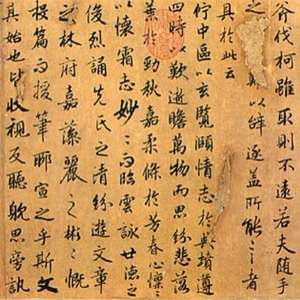 斧伐柯雖取則不遠若夫隨手
之以辝逐盖所能言者
具於此云
佇中區以玄覽頤情志於典墳遵
四時以歎逝瞻萬物而思紛悲落
葉於勁秋嘉柔條於芳春心懍〻
以懷霜志妙〻而臨雲詠世德之
俊烈誦先民之清芬遊文章
之林府嘉藻麗之彬〻慨
投篇而援筆聊宣之乎斯文
其始也皆收視反聽耽思傍訊